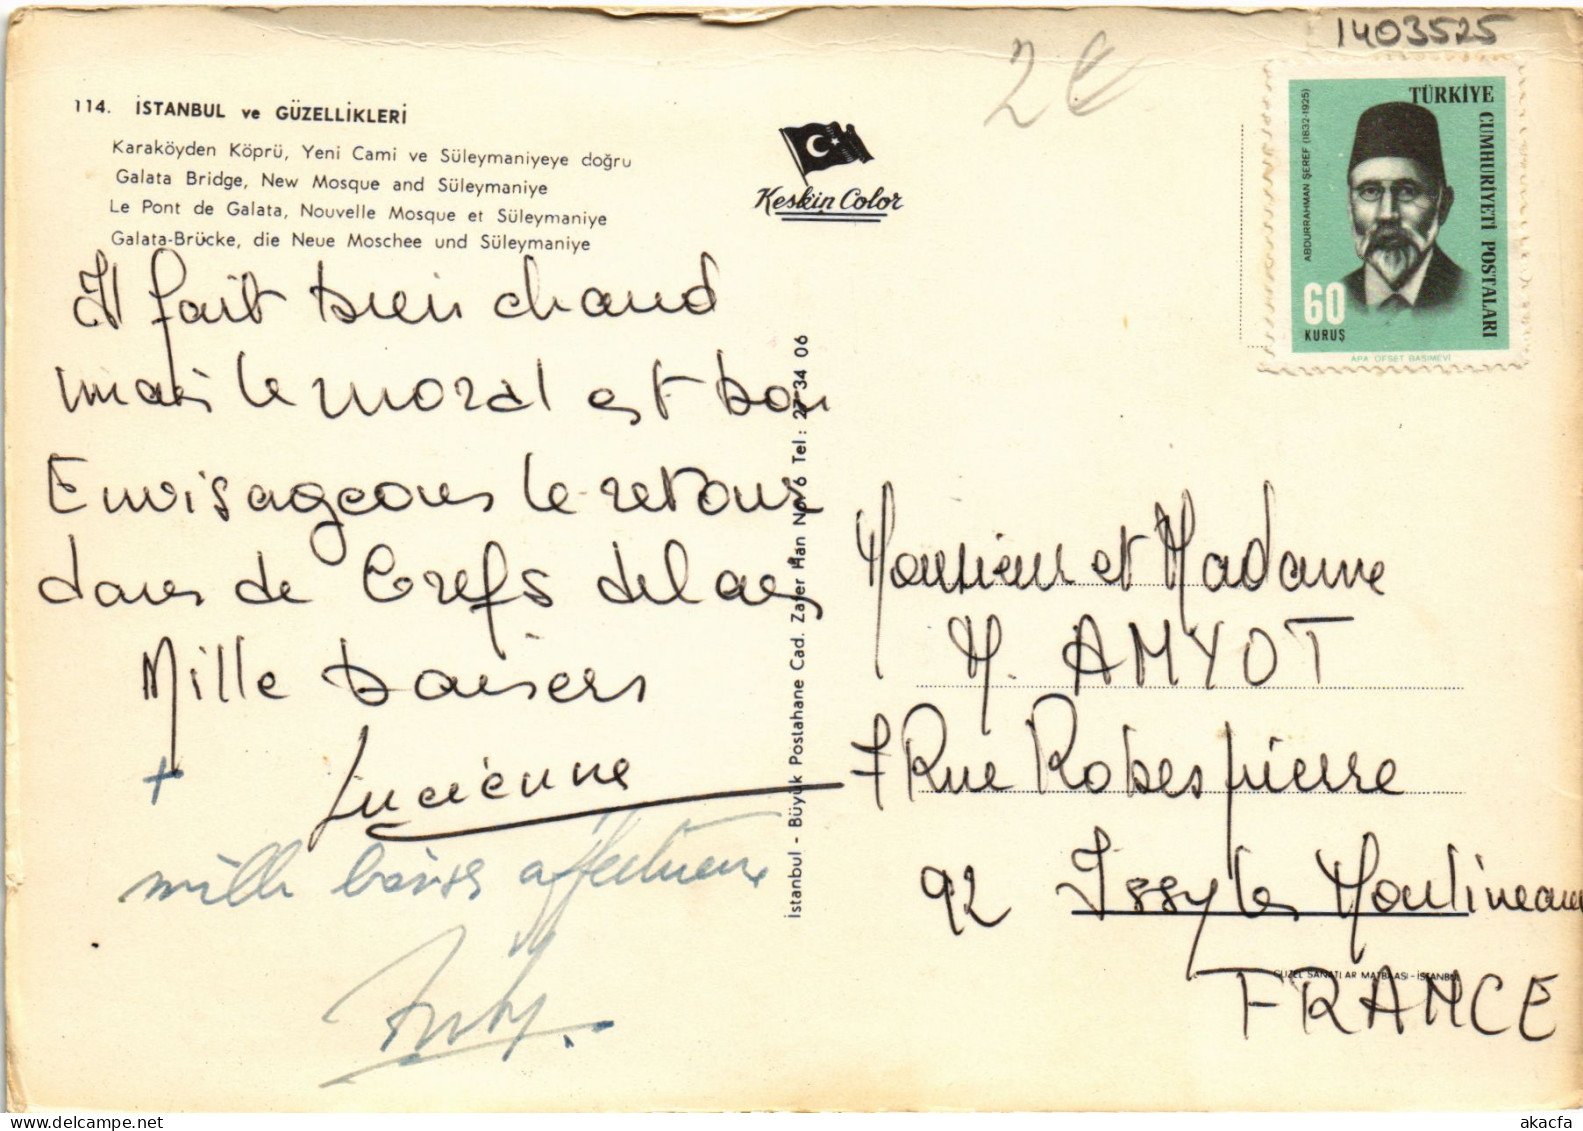 1403525
2€
114. İSTANBUL ve GÜZELLİKLERİ
Karaköyden Köprü, Yeni Cami ve Süleymaniyeye doğru
Galata Bridge, New Mosque and Süleymaniye
Le Pont de Galata, Nouvelle Mosque et Süleymaniye
Galata-Brücke, die Neue Moschee und Süleymaniye
Keskin Color
TÜRKİYE
CUMHURİYETİ POSTALARI
ABDURRAHMAN ŞEREF (1832-1925)
60
KURUŞ
APA OFSET BASIMEVİ
Il fait bien chaud
mais le moral est bon
Envisageons le retour
dans de brefs delais
Mille baisers
Lucienne
+
mille baisers affectueux
İstanbul - Büyük Postahane Cad. Zafer Han No. 6 Tel: 27 34 06
Monsieur et Madame
M. AMYOT
7 Rue Robespierre
92 Issy les Moulineaux
GÜZEL SANATLAR MATBAASI - İSTANBUL
FRANCE
akacfa